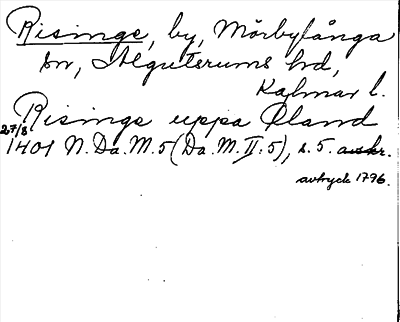 Risinge, by, Mörbylånga
sn, Algutsrums hd,
Kalmar l.
Risinge uppa Øland
27/8 1401 N. Da. M. 5 (Da. M. II: 5), s. 5. avskr.
avtryck 1796.